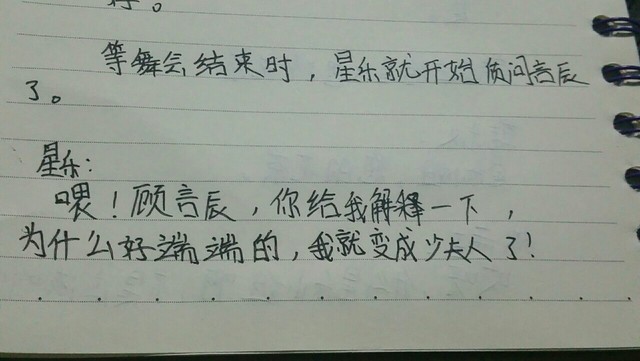 好。
等舞会结束时，星乐就开始质问言辰
了。
星乐：
喂！顾言辰，你给我解释一下，
为什么好端端的，我就变成少夫人了！